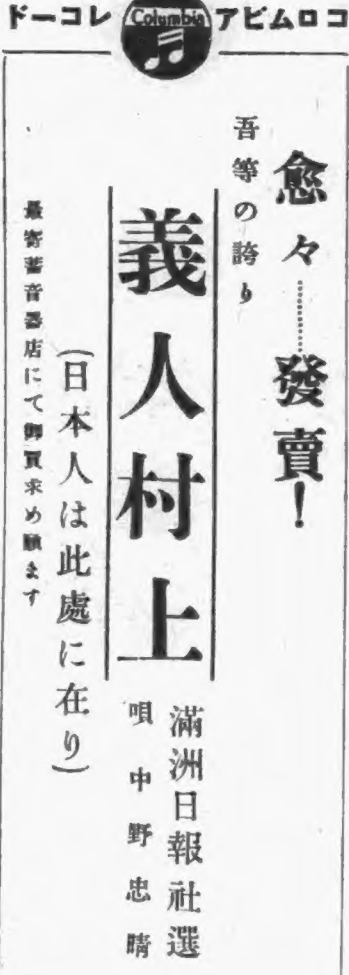 コロムビアレコード
Columbia
愈々………發賣！
吾等の誇り
義人村上
滿洲日報社選
唄 中野忠晴
(日本人は此處に在り)
最寄蓄音器店にて御買求め願ます